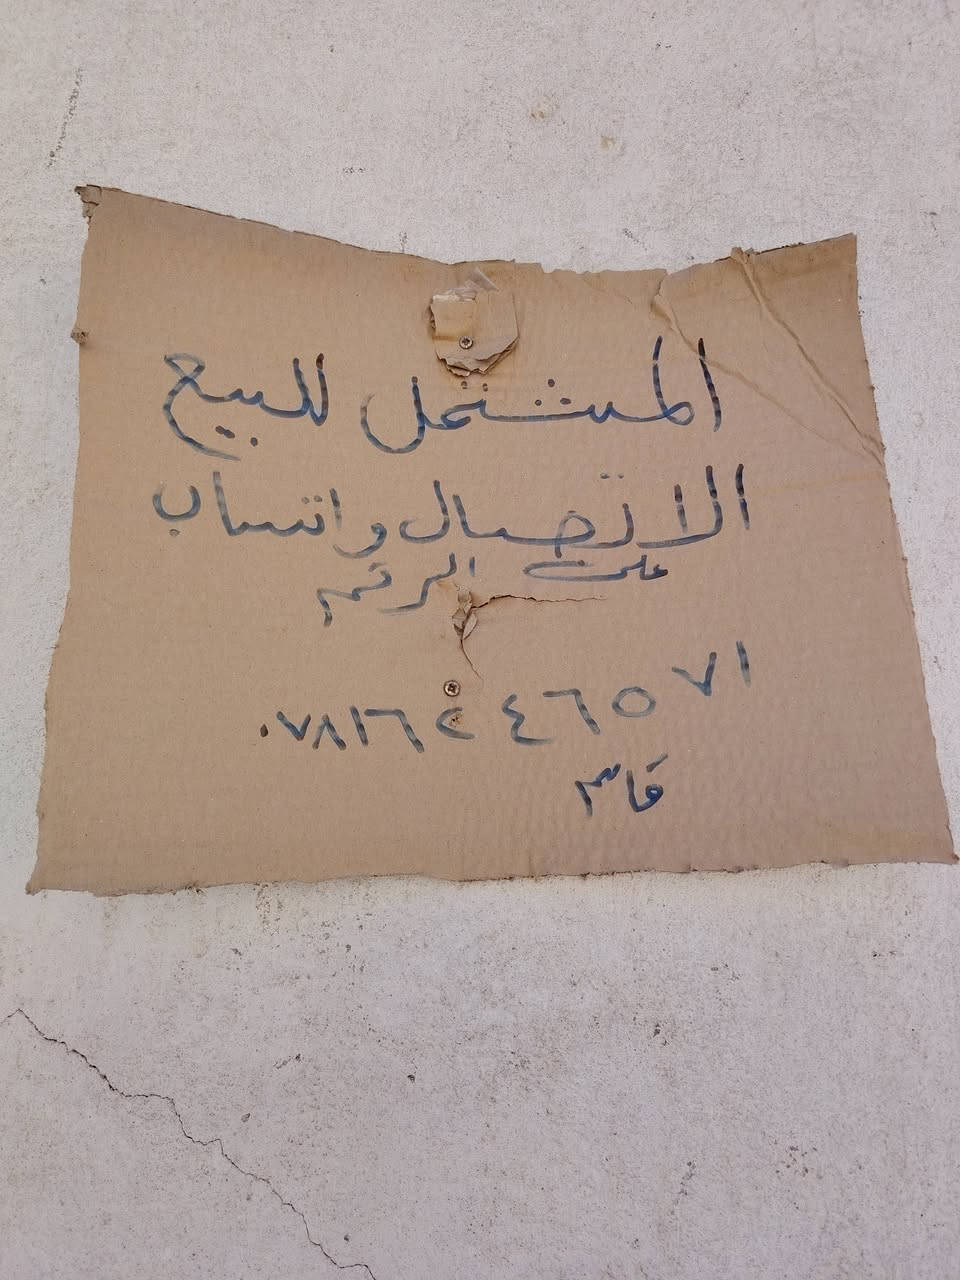 المشتمل للبيع
الاتصال واتساب
على الرقم
٠٧٨١٦٢٤٦٥٧١
قاسم